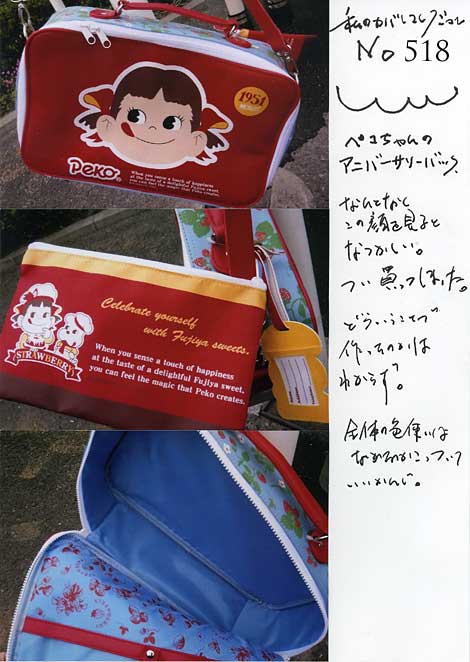 1951
Peko
When you sense a touch of happiness
at the taste of a delightful Fujiya sweet,
you can feel the magic that Peko creates.
Celebrate yourself
with Fujiya sweets.
STRAWBERRY
When you sense a touch of happiness
at the taste of a delightful Fujiya sweet,
you can feel the magic that Peko creates.
私のカバンコレクション
No 518
ペコちゃんの
アニバーサリーバック。
なんとなく
この顔を見ると
なつかしい。
つい買ってしまった。
どういうことで
作ったのかは
わからず。
全体の色使いは
なかなかこっていて
いいかんじ。